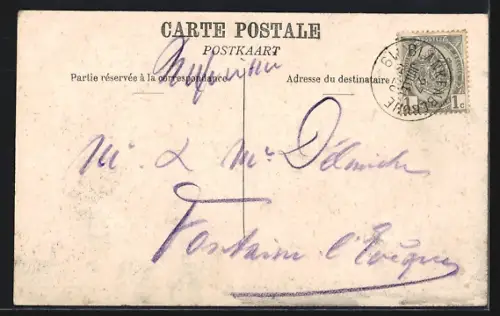 CARTE POSTALE
POSTKAART
Partie réservée à la correspondance
Adresse du destinataire
BLANKENBERGHE
1 1c
Mr & Me Délmiche
Fontaine l'Evêque